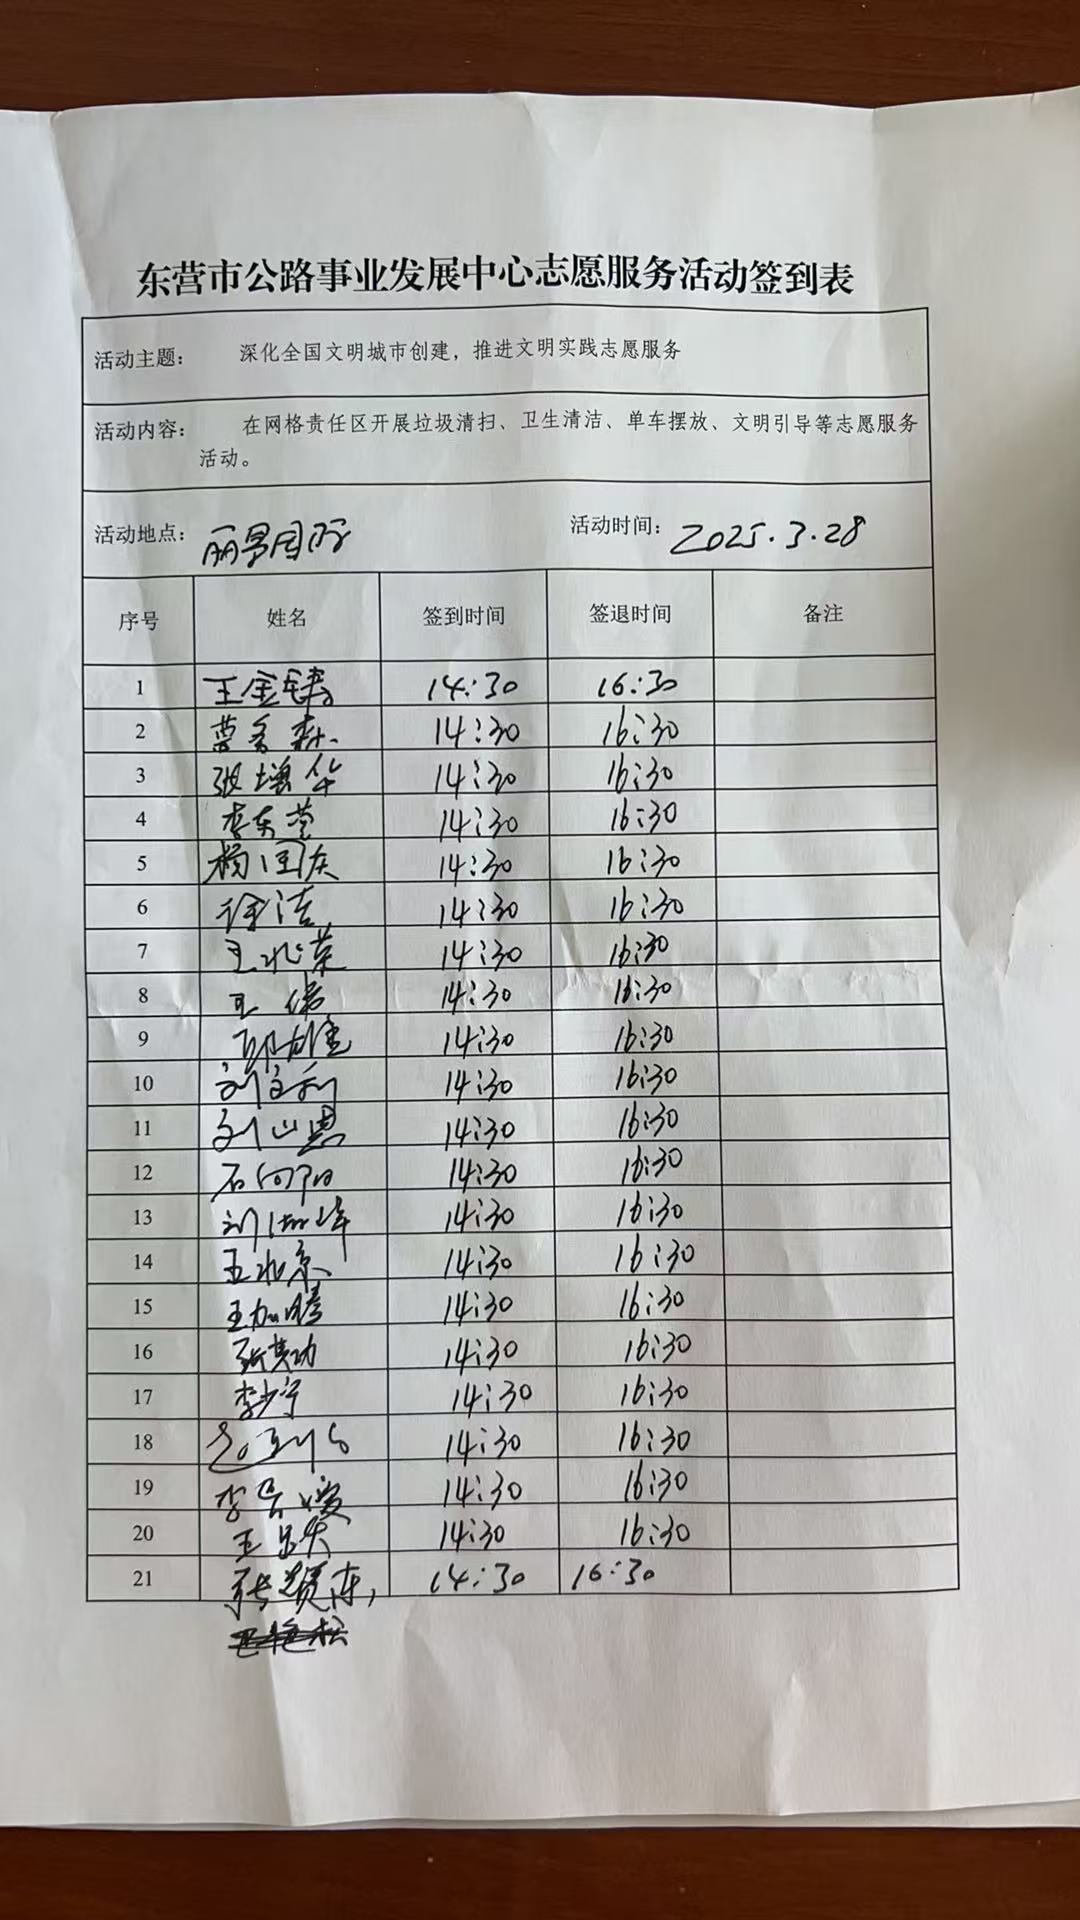 东营市公路事业发展中心志愿服务活动签到表
活动主题： 深化全国文明城市创建，推进文明实践志愿服务
活动内容： 在网格责任区开展垃圾清扫、卫生清洁、单车摆放、文明引导等志愿服务
活动。
活动地点： 丽景国际 活动时间： 2025.3.28
序号 姓名 签到时间 签退时间 备注
1 王金铸 14:30 16:30
2 曹 14:30 16:30
3 张增华 14:30 16:30
4 李东莹 14:30 16:30
5 杨国庆 14:30 16:30
6 徐洁 14:30 16:30
7 王兆荣 14:30 16:30
8 王伟 14:30 16:30
9 14:30 16:30
10 刘文利 14:30 16:30
11 刘山恩 14:30 16:30
12 石向阳 14:30 16:30
13 刘 峰 14:30 16:30
14 王北京 14:30 16:30
15 王加腾 14:30 16:30
16 张其功 14:30 16:30
17 李少宁 14:30 16:30
18 14:30 16:30
19 李 14:30 16:30
20 王 14:30 16:30
21 张 14:30 16:30